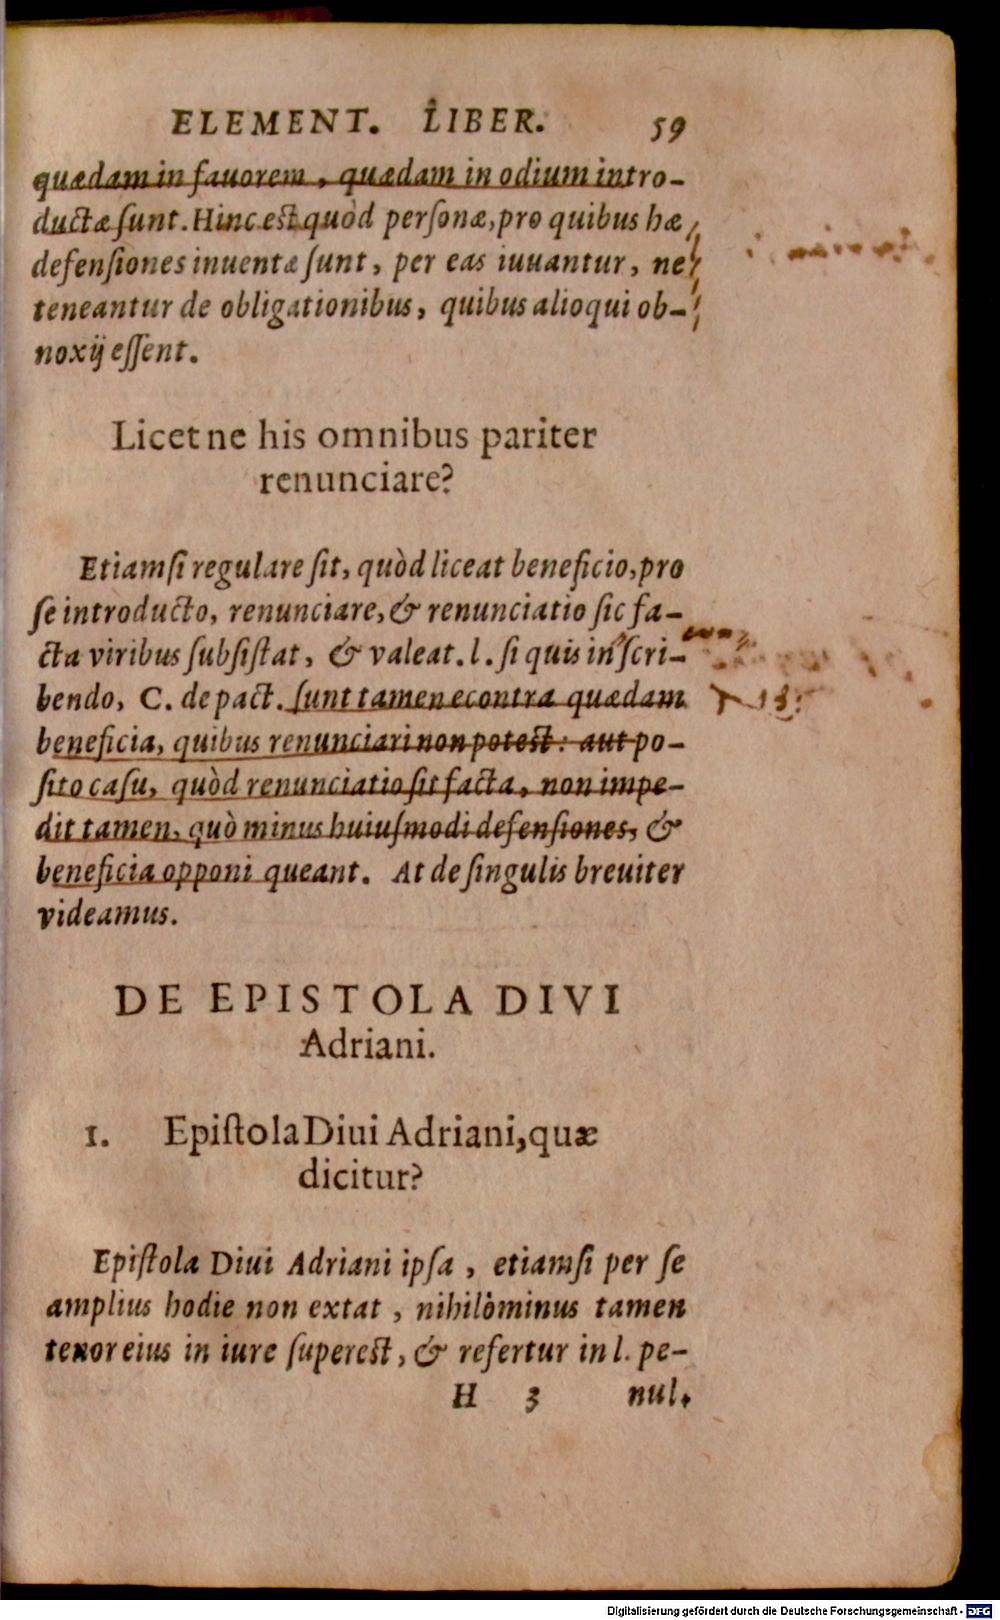 ELEMENT. LIBER. 59
quædam in fauorem, quædam in odium intro-
ductæ ſunt. Hinc est quòd perſonæ, pro quibus hæ
defenſiones inuentæ ſunt, per eas iuuantur, ne
teneantur de obligationibus, quibus alioqui ob-
noxij eſſent.
Licetne his omnibus pariter
renunciare?
Etiamſi regulare ſit, quòd liceat beneficio, pro
ſe introducto, renunciare, & renunciatio ſic fa-
cta viribus ſubſiſtat, & valeat. l. ſi quis in ſcri-
bendo, C. de pact. ſunt tamen econtra quædam
beneficia, quibus renunciari non potest: aut po-
ſito caſu, quòd renunciatio ſit facta, non impe-
dit tamen, quò minus huiuſmodi defenſiones, &
beneficia opponi queant. At de ſingulis breuiter
videamus.
DE EPISTOLA DIVI
Adriani.
1. Epiſtola Diui Adriani, quæ
dicitur?
Epiſtola Diui Adriani ipſa, etiamſi per ſe
amplius hodie non extat, nihilòminus tamen
tenor eius in iure ſuperest, & refertur in l. pe-
H 3 nul.
Digitalisierung gefördert durch die Deutsche Forschungsgemeinschaft - DFG